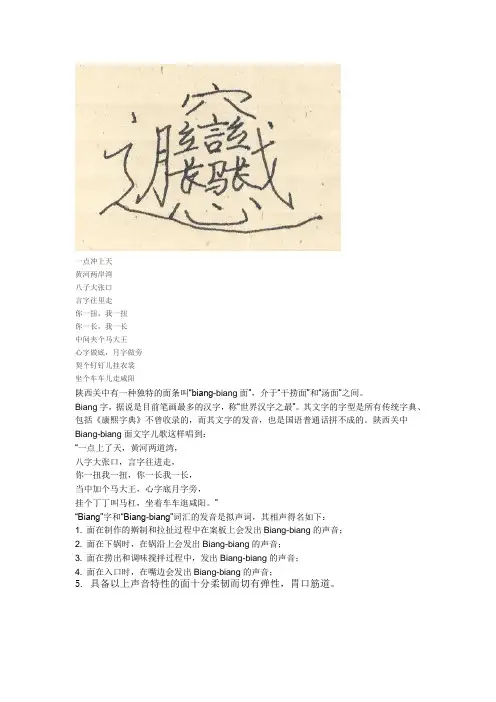 𰻞
一点冲上天
黄河两岸湾
八子大张口
言字往里走
你一扭，我一扭
你一长，我一长
中间夹个马大王
心字做底，月字做旁
契个钉钉儿挂衣裳
坐个车车儿走咸阳
陕西关中有一种独特的面条叫“biang-biang面”，介于“干捞面”和“汤面”之间。
Biang字，据说是目前笔画最多的汉字，称“世界汉字之最”。其文字的字型是所有传统字典、
包括《康熙字典》不曾收录的，而其文字的发音，也是国语普通话拼不成的。陕西关中
Biang-biang面文字儿歌这样唱到：
“一点上了天，黄河两道湾，
八字大张口，言字往进走，
你一扭我一扭，你一长我一长，
当中加个马大王，心字底月字旁，
挂个丁丁叫马杠，坐着车车逛咸阳。“
“Biang”字和“Biang-biang”词汇的发音是拟声词，其相声得名如下：
1. 面在制作的擀制和拉扯过程中在案板上会发出Biang-biang的声音；
2. 面在下锅时，在锅沿上会发出Biang-biang的声音；
3. 面在捞出和调味搅拌过程中，发出Biang-biang的声音；
4. 面在入口时，在嘴边会发出Biang-biang的声音；
5. 具备以上声音特性的面十分柔韧而切有弹性，胃口筋道。